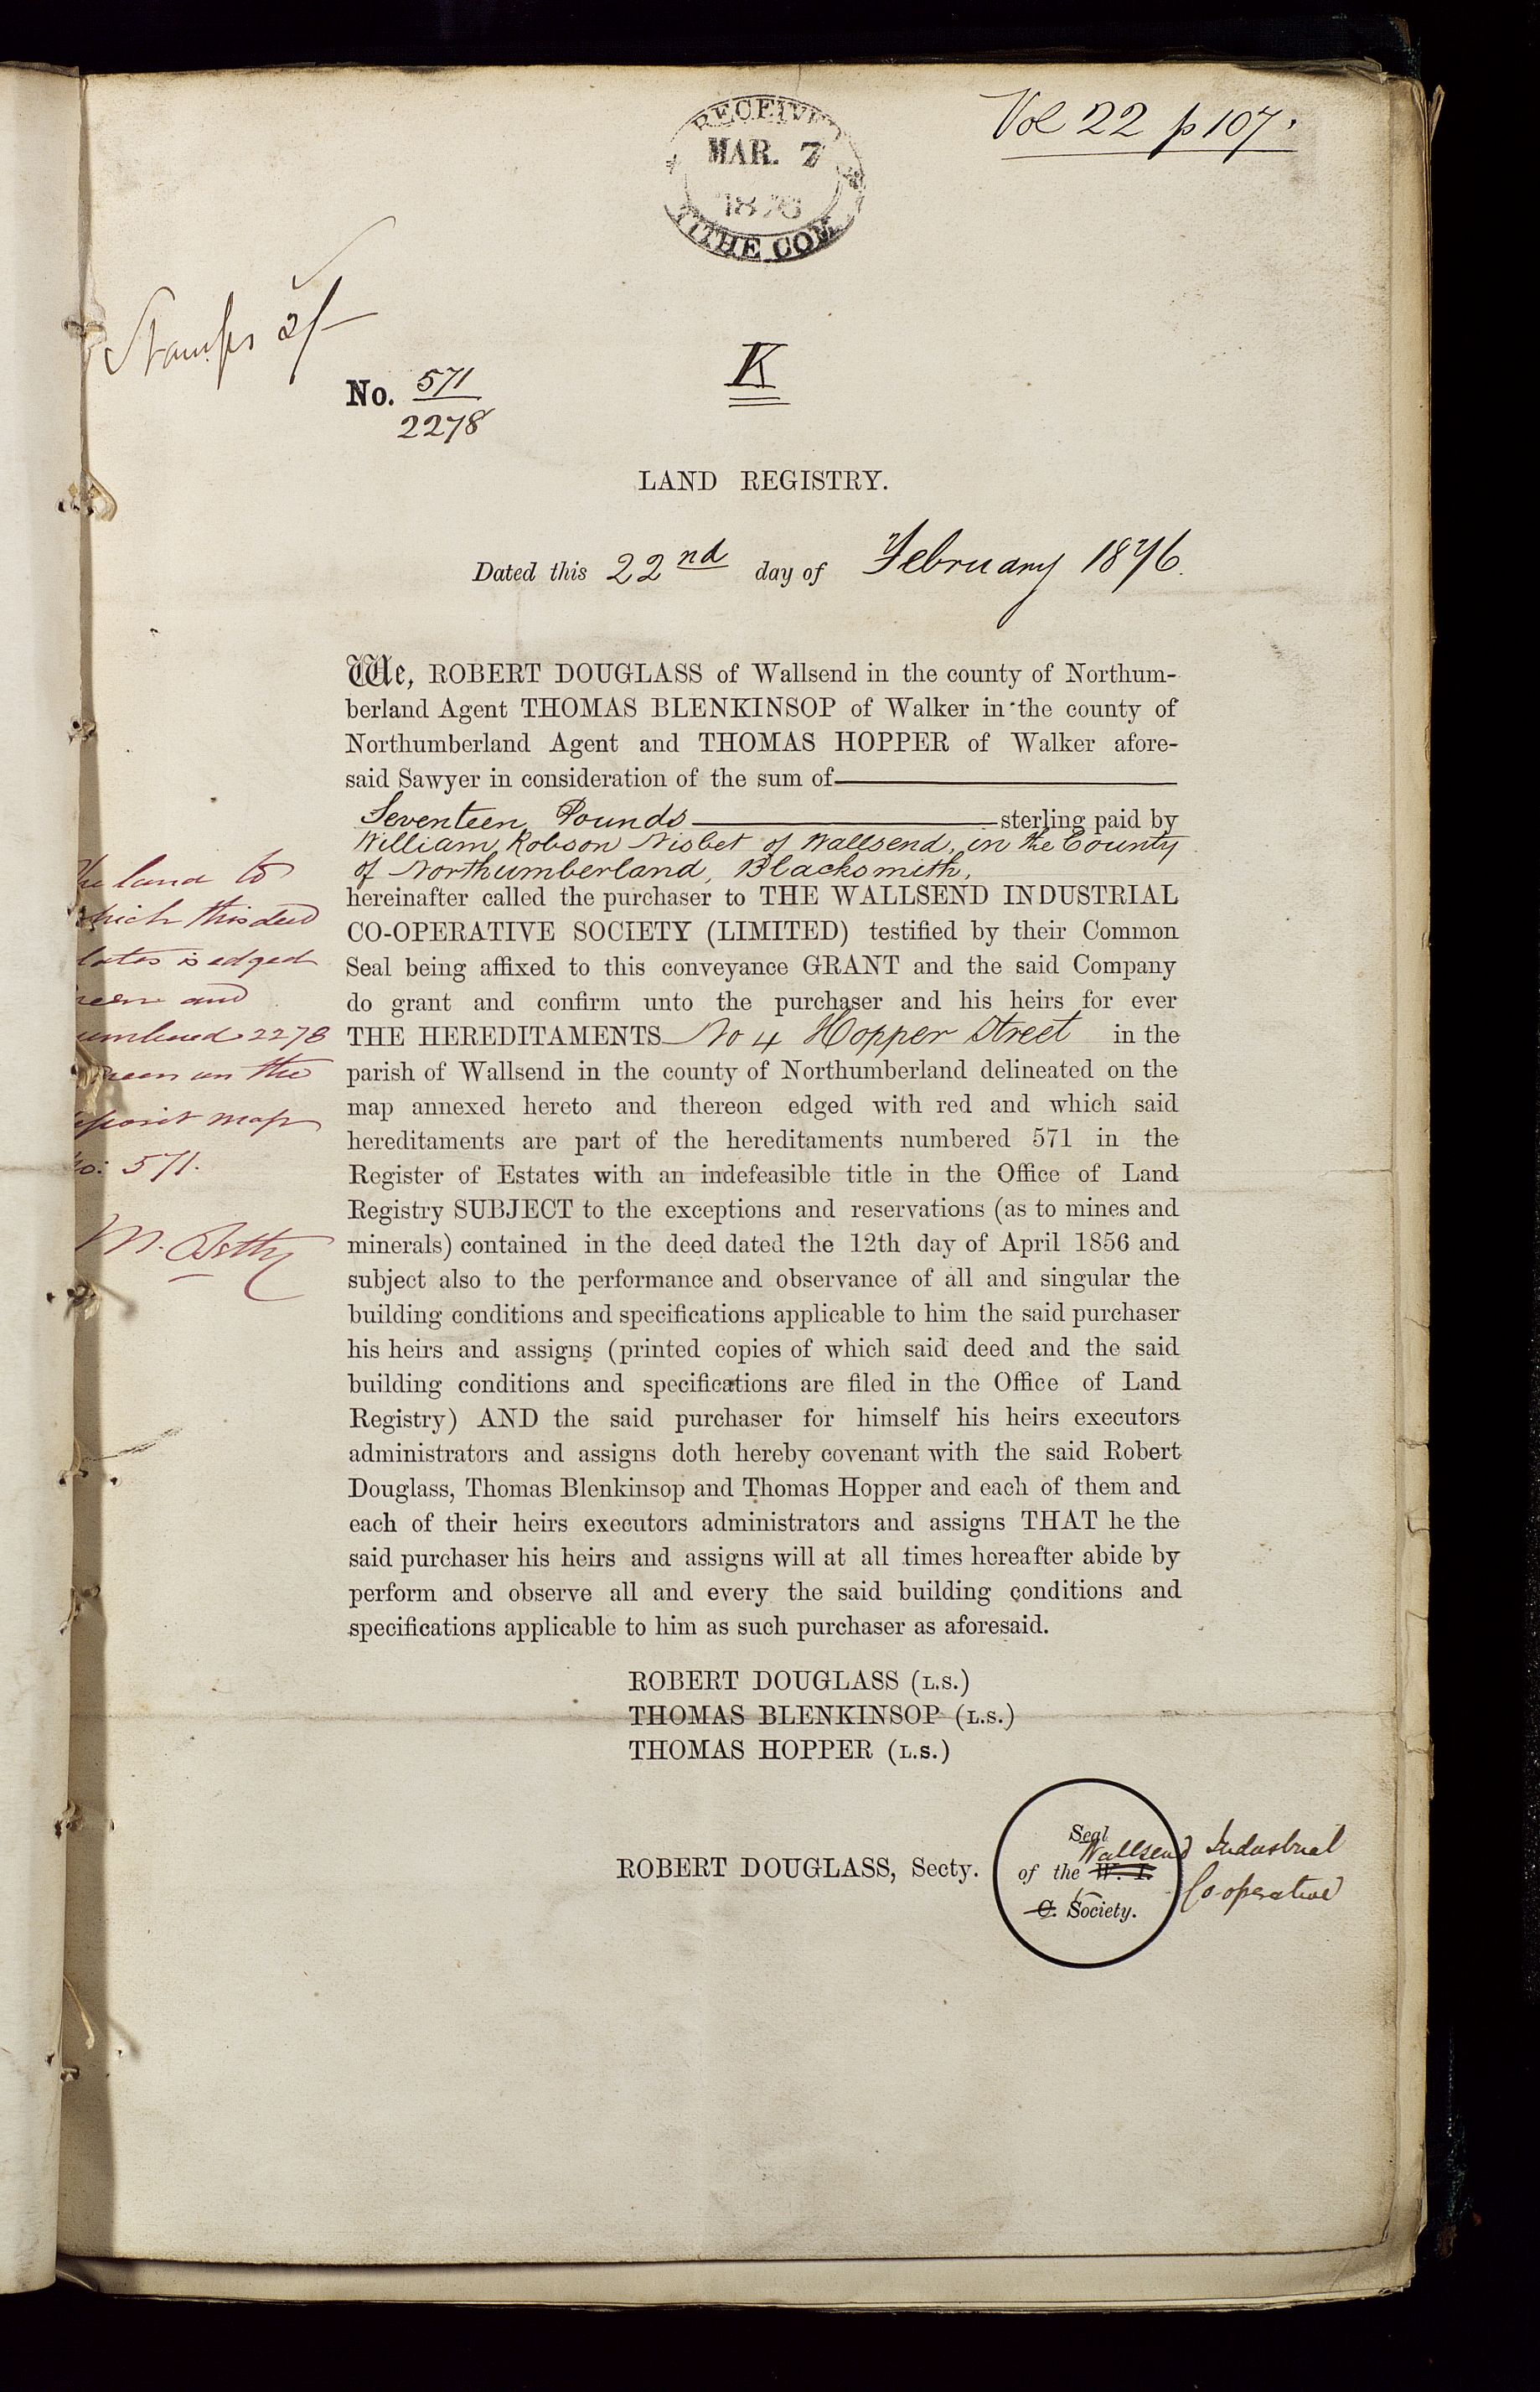 Vol 22 p 107.
RECEIVE
MAR. 7
1876
TITHE COM
Stamps 2/-
K
No. 571
2278
LAND REGISTRY.
Dated this 22nd day of February 1876.
We, ROBERT DOUGLASS of Wallsend in the county of Northum-
berland Agent THOMAS BLENKINSOP of Walker in the county of
Northumberland Agent and THOMAS HOPPER of Walker afore-
said Sawyer in consideration of the sum of
Seventeen Pounds sterling paid by
William Robson Nisbet of Wallsend, in the County
of Northumberland, Blacksmith,
hereinafter called the purchaser to THE WALLSEND INDUSTRIAL
CO-OPERATIVE SOCIETY (LIMITED) testified by their Common
Seal being affixed to this conveyance GRANT and the said Company
do grant and confirm unto the purchaser and his heirs for ever
THE HEREDITAMENTS No 4 Hopper Street in the
parish of Wallsend in the county of Northumberland delineated on the
map annexed hereto and thereon edged with red and which said
hereditaments are part of the hereditaments numbered 571 in the
Register of Estates with an indefeasible title in the Office of Land
Registry SUBJECT to the exceptions and reservations (as to mines and
minerals) contained in the deed dated the 12th day of April 1856 and
subject also to the performance and observance of all and singular the
building conditions and specifications applicable to him the said purchaser
his heirs and assigns (printed copies of which said deed and the said
building conditions and specifications are filed in the Office of Land
Registry) AND the said purchaser for himself his heirs executors
administrators and assigns doth hereby covenant with the said Robert
Douglass, Thomas Blenkinsop and Thomas Hopper and each of them and
each of their heirs executors administrators and assigns THAT he the
said purchaser his heirs and assigns will at all times hereafter abide by
perform and observe all and every the said building conditions and
specifications applicable to him as such purchaser as aforesaid.
land to
this deed
is edged
and
2278
on the
map
571.
ROBERT DOUGLASS (L.S.)
THOMAS BLENKINSOP (L.S.)
THOMAS HOPPER (L.S.)
ROBERT DOUGLASS, Secty.
Seal
Wallsend Industrial
of the W. I.
Co-operative
C. Society.